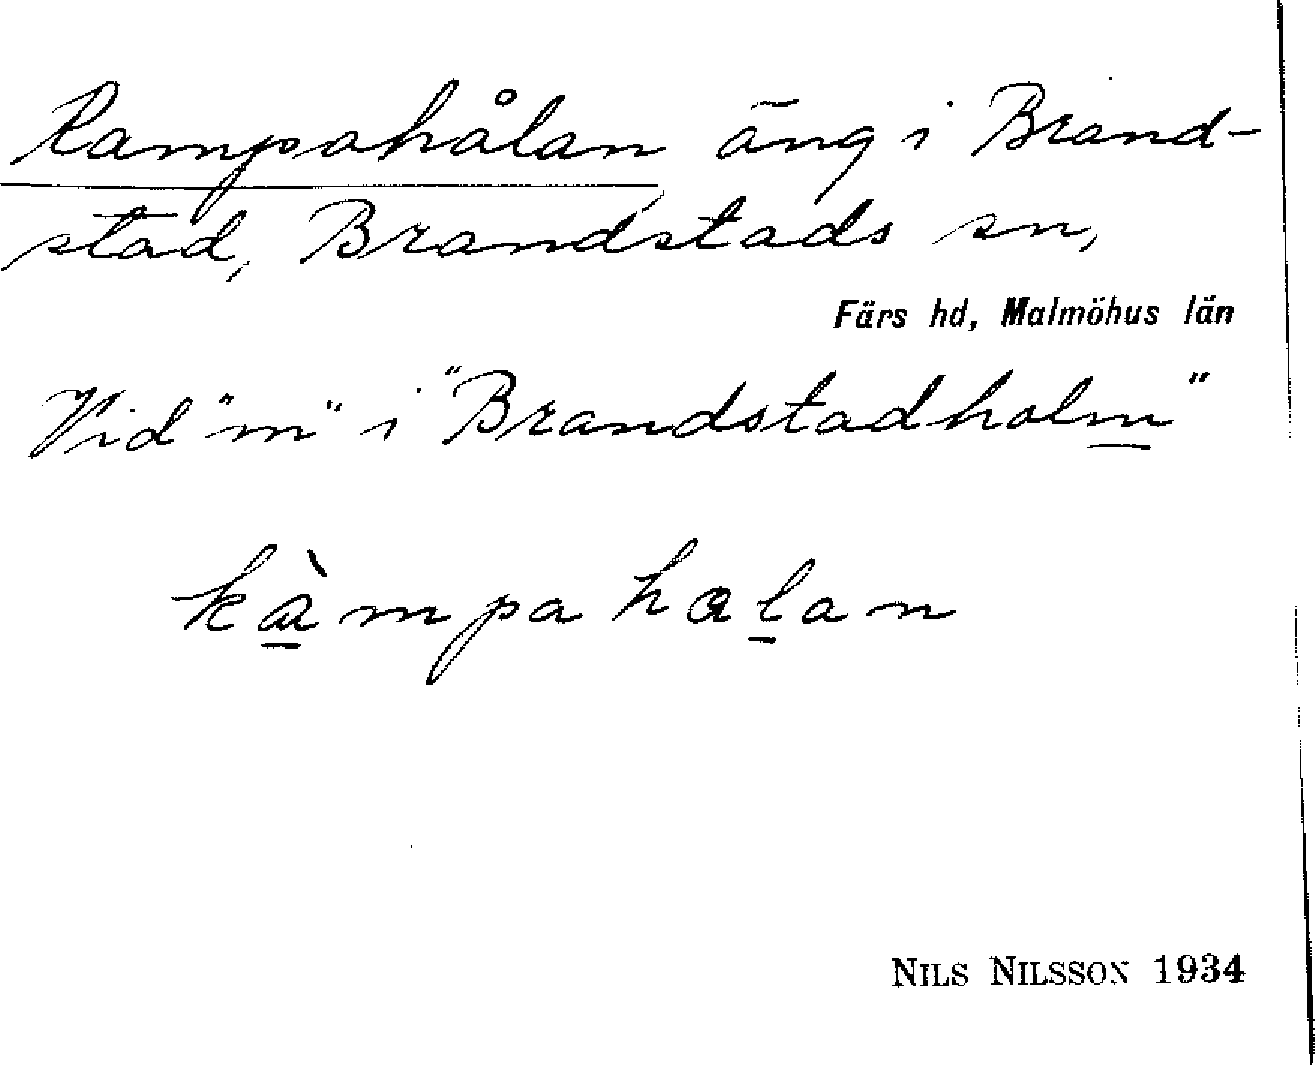 Kampahålan, äng i Brand-
stad, Brandstads sn,
Färs hd, Malmöhus län
Vid "m" i "Brandstadholm"
kàmpahalan
NILS NILSSON 1934